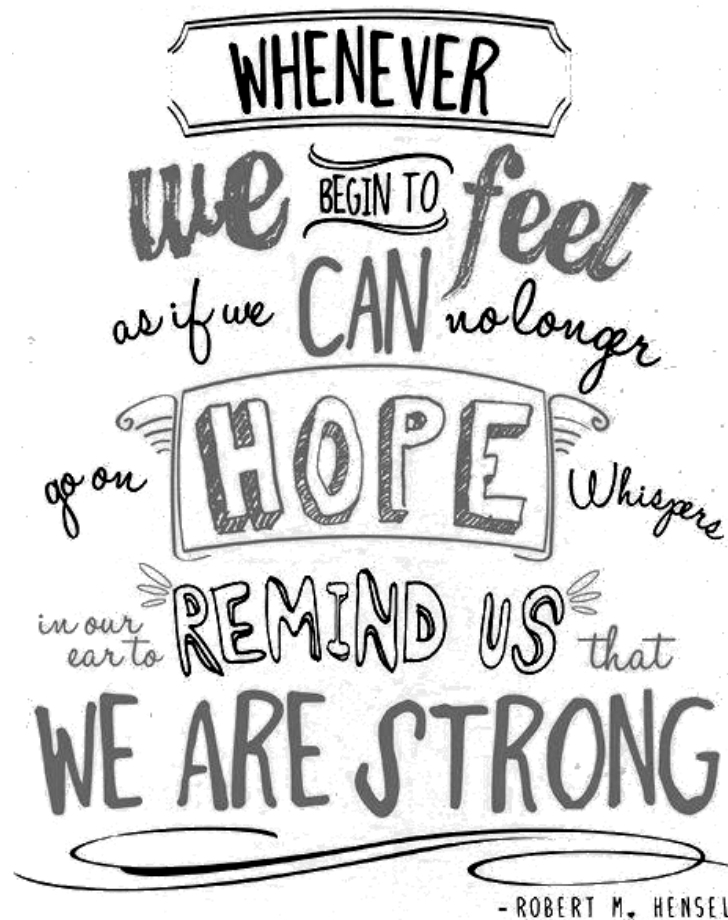 WHENEVER
we BEGIN TO feel
as if we CAN no longer
go on HOPE Whispers
in our
ear to REMIND US that
WE ARE STRONG
-ROBERT M. HENSEL